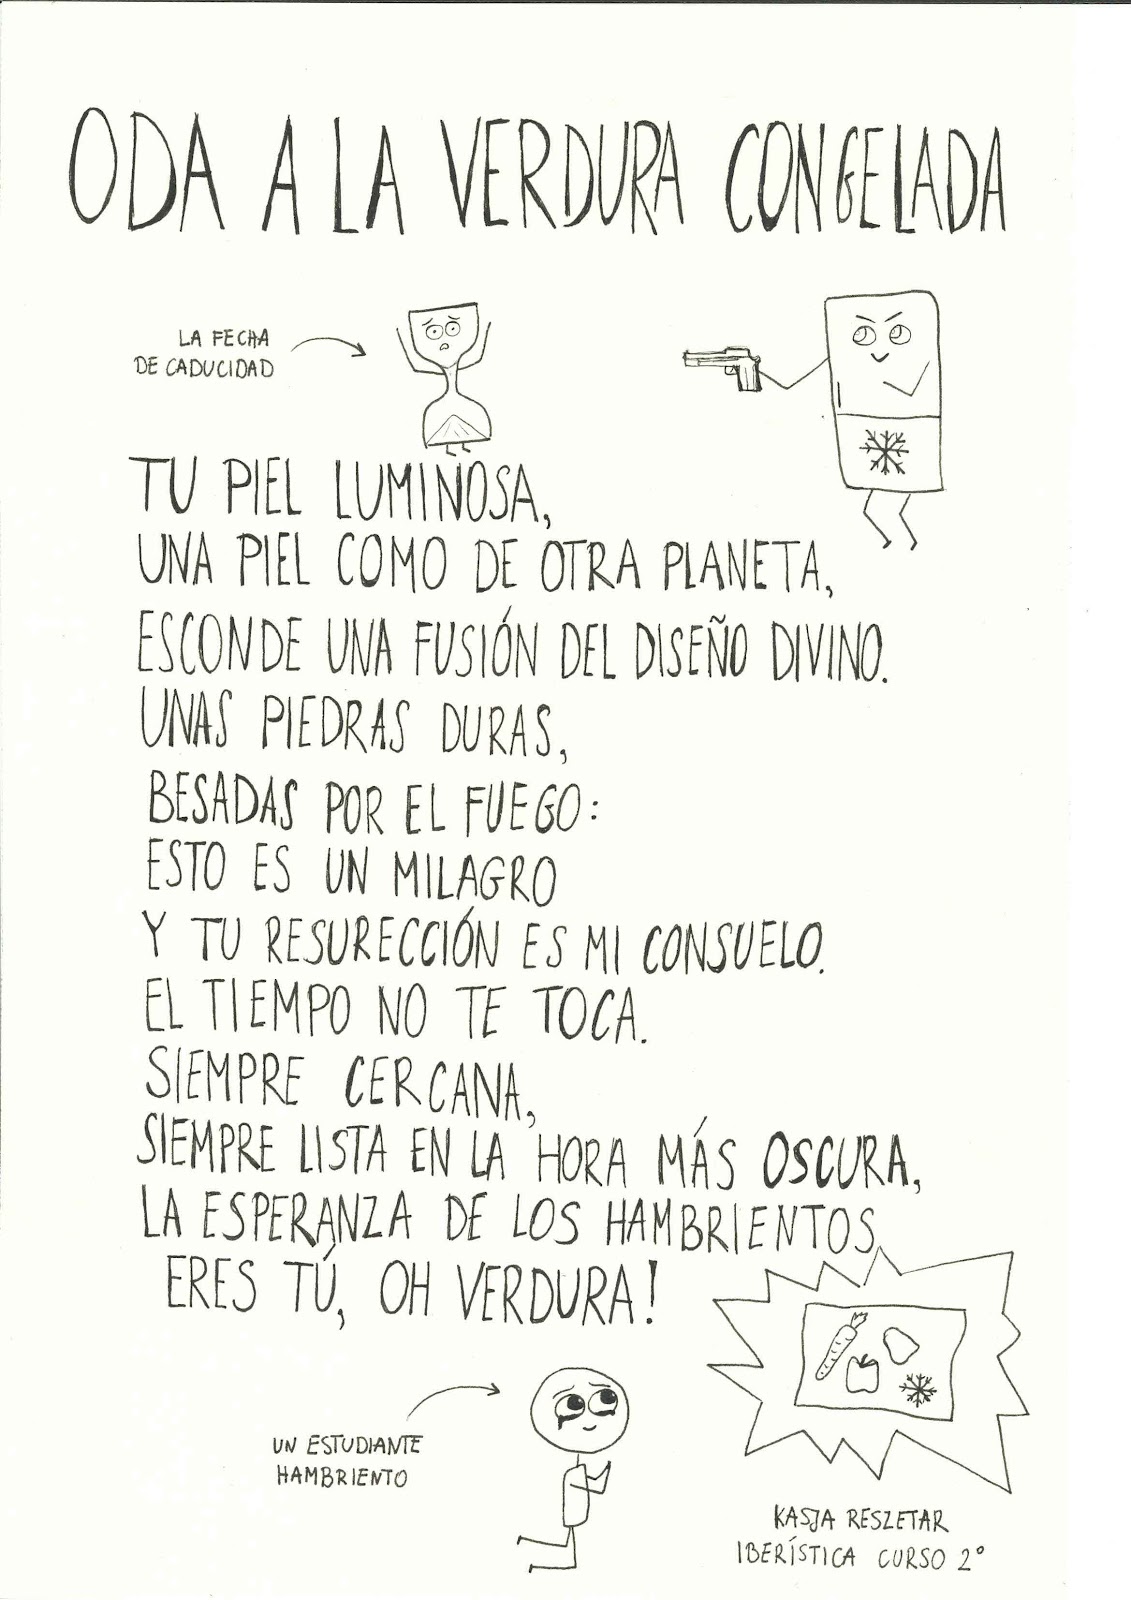 ODA A LA VERDURA CONGELADA
LA FECHA
DE CADUCIDAD
TU PIEL LUMINOSA,
UNA PIEL COMO DE OTRA PLANETA,
ESCONDE UNA FUSIÓN DEL DISEÑO DIVINO.
UNAS PIEDRAS DURAS,
BESADAS POR EL FUEGO:
ESTO ES UN MILAGRO
Y TU RESURECCIÓN ES MI CONSUELO.
EL TIEMPO NO TE TOCA.
SIEMPRE CERCANA,
SIEMPRE LISTA EN LA HORA MÁS OSCURA,
LA ESPERANZA DE LOS HAMBRIENTOS
ERES TÚ, OH VERDURA!
UN ESTUDIANTE
HAMBRIENTO
KASJA RESZETAR
IBERÍSTICA CURSO 2°